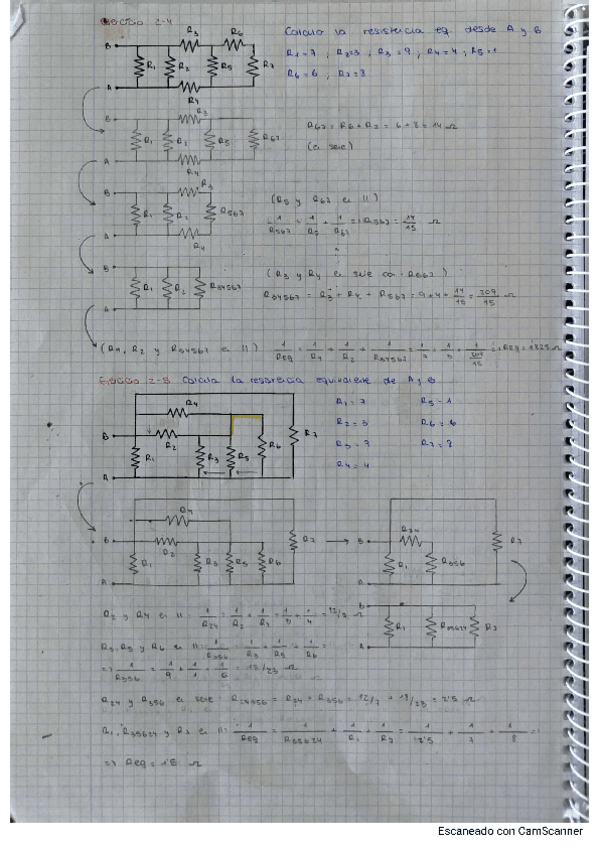 Ejercicio 2-4
Calcula la resistencia eq. desde A y B
R1=7 , R2=3 , R3=9, R4=4, R5=1
R6=6 , R7=8
B R3 R6
R1 R2 R5 R7
A R4
B R3
R67 = R6 + R7 = 6+8 = 14 Ω
(en serie)
R1 R2 R5 R67
A R4
B R3
(R5 y R67 en ||)
R1 R2 R567
1/R567 = 1/R5 + 1/R67 => R567 = 14/15 Ω
A R4
B
(R3 y R4 en serie con R567)
R1 R2 R34567
R34567 = R3 + R4 + R567 = 9+4+ 14/15 = 209/15 Ω
A
(R1, R2 y R34567 en ||) 1/Req = 1/R1 + 1/R2 + 1/R34567 = 1/7 + 1/3 + 1/(209/15) => Req = 1'825 Ω
Ejercicio 2-5 Calcula la resistencia equivalente de A y B
R1 = 7 R5 = 1
R2 = 3 R6 = 6
R7 = 8
R4 = 4
R4
B R2 R7
R1 R3 R5 R6
A
R4
B R2 R7
R1 R3 R5 R6
A
B R24 R7
R1 R356
A
B
R1 R7
A
R2 y R4 en ||: 1/R24 = 1/R2 + 1/R4 = 1/3 + 1/4 = 12/7 Ω
R3, R5 y R6 en || 1/R356 = 1/R3 + 1/R5 + 1/R6 =
=> 1/R356 = 1/9 + 1/1 + 1/6 = 18/23 Ω
R24 y R356 en serie: R24356 = R24 + R356 = 12/7 + 18/23 = 2'5 Ω
R1, R35624 y R7 en ||: 1/Req = 1/R35624 + 1/R1 + 1/R7 = 1/2'5 + 1/7 + 1/8 =
=> Req = 1'5 Ω
Escaneado con CamScanner